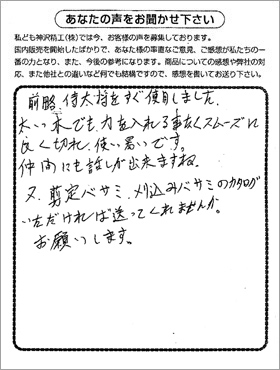 あなたの声をお聞かせ下さい
私ども神沢精工(株)では今、お客様の声を募集しております。
国内販売を開始したばかりで、あなた様の率直なご意見、ご感想が私たちの一
番の力となり、また、今後の参考になります。商品についての感想や弊社の対
応、また他社との違いなど何でも結構ですので、感想を書いてお送り下さい。
前略 侍太将をすぐ使用しました。
太い木でも力を入れる事なくスムーズに
良く切れ、使い易いです。
仲間にも話しが出来ますね。
又、剪定バサミ、刈込みバサミのカタログ
いただければ送ってくれませんか。
お願いします。